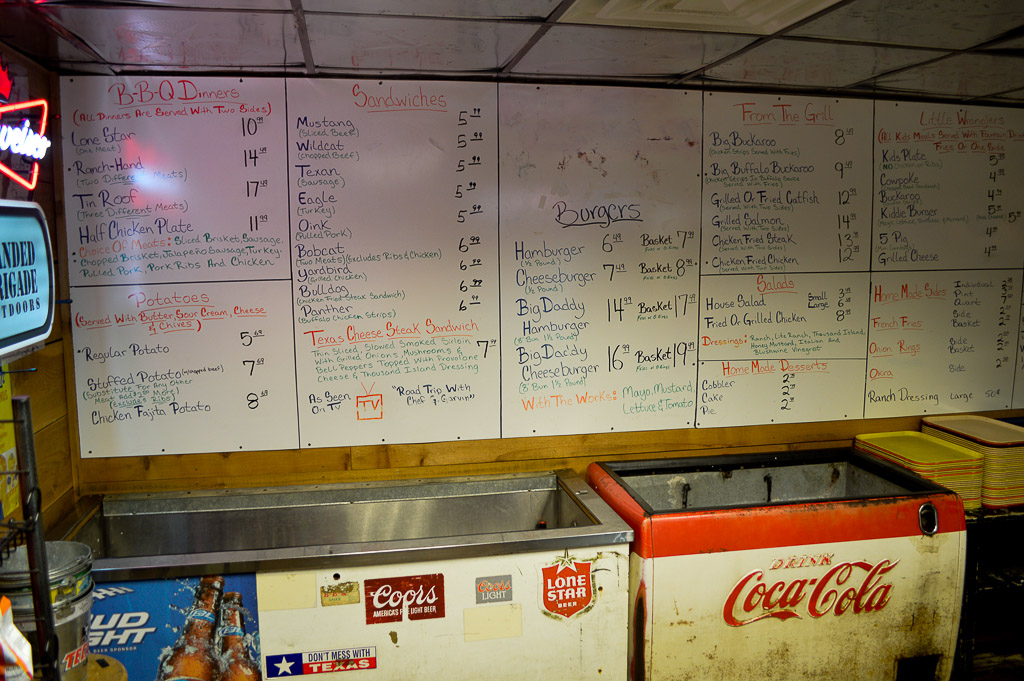 B-B-Q Dinners
(All Dinners Are Served With Two Sides)
Lone Star 10.99
(One Meat)
Ranch-Hand 14.49
(Two Different Meats)
Tin Roof 17.49
(Three Different Meats)
Half Chicken Plate 11.99
Choice Of Meats: Sliced Brisket, Sausage,
Chopped Brisket, Jalapeño Sausage, Turkey,
Pulled Pork, Pork Ribs And Chicken.
Potatoes
(Served With Butter, Sour Cream, Cheese
& Chives)
Regular Potato 5.69
Stuffed Potato 7.69
(Substitute For Any Other
Chicken Fajita Potato 8.69
Sandwiches
Mustang 5.99
(Sliced Beef)
Wildcat 5.99
(Chopped Beef)
Texan 5.99
(Sausage)
Eagle 5.99
(Turkey)
Oink 5.99
(Pulled Pork)
Bobcat 6.99
(Two Meats) (Excludes Ribs & Chicken)
Yardbird 6.99
(Grilled Chicken)
Bulldog 6.99
(Chicken Fried Steak Sandwich)
Panther 6.99
(Buffalo Chicken Strips)
Texas Cheese Steak Sandwich
Thin Sliced, Slowed Smoked Sirloin 7.99
With Grilled Onions, Mushrooms &
Bell Peppers Topped With Provolone
Cheese & Thousand Island Dressing
As Seen
On TV
TV
"Road Trip With
Chef
Burgers
Hamburger 6.49 Basket 7.99
(½ Pound)
Cheeseburger 7.49 Basket 8.99
(½ Pound)
Big Daddy 14.99 Basket 17.49
Hamburger
(8" Bun 1½ Pound)
Big Daddy 16.99 Basket 19.49
Cheeseburger
(8" Bun 1½ Pound)
With The Works: Mayo, Mustard,
Lettuce & Tomato
From The Grill
Big Buckaroo 8
(Chicken Strips Served With Fries)
Big Buffalo Buckaroo 9
(Chicken Strips In Buffalo Sauce
Served With Fries)
Grilled Or Fried Catfish 12
(Served With Two Sides)
Grilled Salmon 14
(Served With Two Sides)
Chicken Fried Steak 13
(Served With Two Sides)
Chicken Fried Chicken 12
(Served With Two Sides)
Salads
House Salad Small
Large
Fried Or Grilled Chicken 8
Dressings: Ranch, Lite Ranch, Thousand Island,
Honey Mustard, Italian And
Home Made Desserts
Cobbler
Cake
Pie
Little Wranglers
(All Kids Meals Served With Fountain Drink
Fries Or One Side
Kids Plate
Cowpoke
Buckaroo
Kiddie Burger
5 Pig
Grilled Cheese
Home Made Sides Individual
Pint
Quart
French Fries Side
Basket
Onion Rings Side
Basket
Okra Side
Ranch Dressing Large 50¢
ANDED
RIGADE
TDOORS
BUD
LIGHT
Coors
AMERICA'S FINE LIGHT BEER
Coors
LIGHT
LONE
STAR
BEER
DON'T MESS WITH
TEXAS
DRINK
Coca-Cola